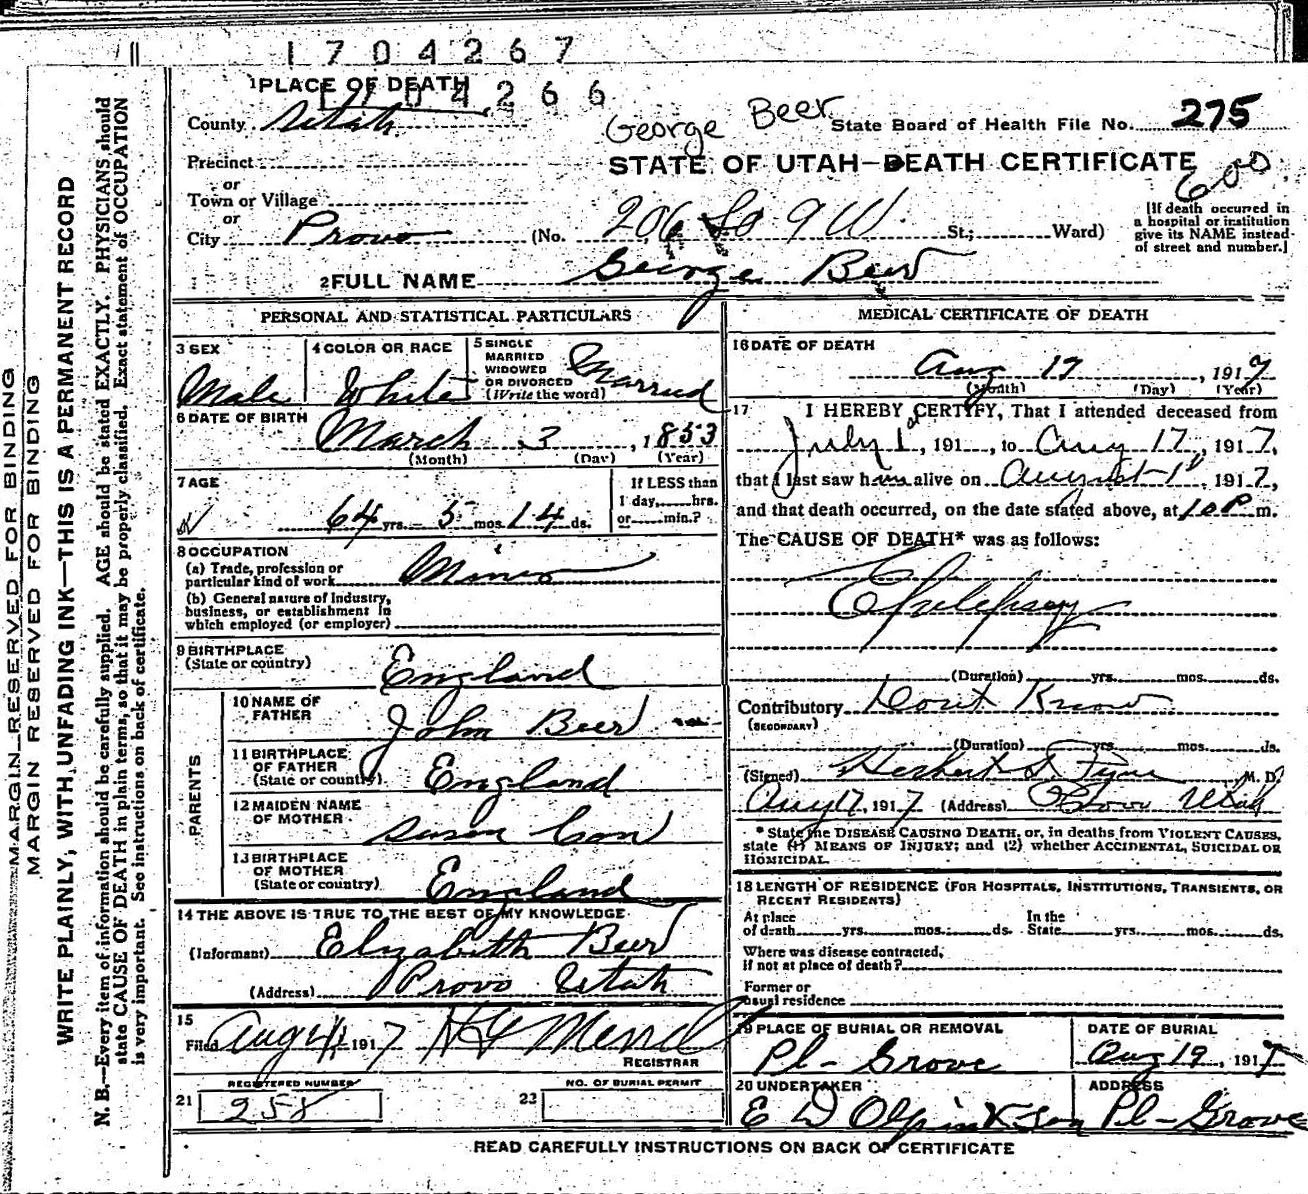 1704267
1704266
1 PLACE OF DEATH
County Utah
George Beer
State Board of Health File No. 275
Precinct
STATE OF UTAH—DEATH CERTIFICATE
600
or
Town or Village
or
City Provo (No. 206 So 9 W St.; Ward)
[If death occurred in
a hospital or institution
give its NAME instead
of street and number.]
2 FULL NAME George Beer
MARGIN RESERVED FOR BINDING
MARGIN RESERVED FOR BINDING
WRITE PLAINLY, WITH UNFADING INK—THIS IS A PERMANENT RECORD
N. B.—Every item of information should be carefully supplied. AGE should be stated EXACTLY. PHYSICIANS should
state CAUSE OF DEATH in plain terms, so that it may be properly classified. Exact statement of OCCUPATION
is very important. See instructions on back of certificate.
PERSONAL AND STATISTICAL PARTICULARS
3 SEX
Male
4 COLOR OR RACE
White
5 SINGLE
MARRIED
WIDOWED
OR DIVORCED
(Write the word)
Married
6 DATE OF BIRTH
March 3, 1853
(Month) (Day) (Year)
7 AGE
64 yrs. 5 mos. 14 ds.
If LESS than
1 day, hrs.
or min.?
8 OCCUPATION
(a) Trade, profession or
particular kind of work Miner
(b) General nature of Industry,
business, or establishment in
which employed (or employer)
9 BIRTHPLACE
(State or country)
England
PARENTS
10 NAME OF
FATHER
John Beer
11 BIRTHPLACE
OF FATHER
(State or country)
England
12 MAIDEN NAME
OF MOTHER
Susan
13 BIRTHPLACE
OF MOTHER
(State or country)
England
14 THE ABOVE IS TRUE TO THE BEST OF MY KNOWLEDGE
(Informant) Elizabeth Beer
(Address) Provo Utah
15
Filed Aug 1917
REGISTRAR
REGISTERED NUMBER
21 258
NO. OF BURIAL PERMIT
22
MEDICAL CERTIFICATE OF DEATH
16 DATE OF DEATH
Aug 17, 1917
(Month) (Day) (Year)
17 I HEREBY CERTIFY, That I attended deceased from
July 1, 191 , to Aug 17, 1917,
that I last saw him alive on August 1, 1917,
and that death occurred, on the date stated above, at 10 P m.
The CAUSE OF DEATH* was as follows:
Epilepsy
(Duration) yrs. mos. ds.
Contributory Dont Know
(SECONDARY)
(Duration) yrs. mos. ds.
(Signed) Herbert S. Pyne M. D.
Aug 17, 1917 (Address) Provo Utah
* State the DISEASE CAUSING DEATH, or, in deaths from VIOLENT CAUSES,
state (1) MEANS OF INJURY; and (2) whether ACCIDENTAL, SUICIDAL OR
HOMICIDAL.
18 LENGTH OF RESIDENCE (FOR HOSPITALS, INSTITUTIONS, TRANSIENTS, OR
RECENT RESIDENTS)
At place
of death yrs. mos. ds.
In the
State yrs. mos. ds.
Where was disease contracted,
if not at place of death?
Former or
usual residence
19 PLACE OF BURIAL OR REMOVAL
Pl-Grove
DATE OF BURIAL
Aug 19, 1917
20 UNDERTAKER
E D Olpin & Son
ADDRESS
Pl-Grove
READ CAREFULLY INSTRUCTIONS ON BACK OF CERTIFICATE